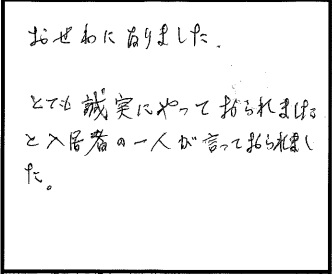 おせわになりました.
とても誠実にやっておられました
と入居者の一人が言っておられまし
た。